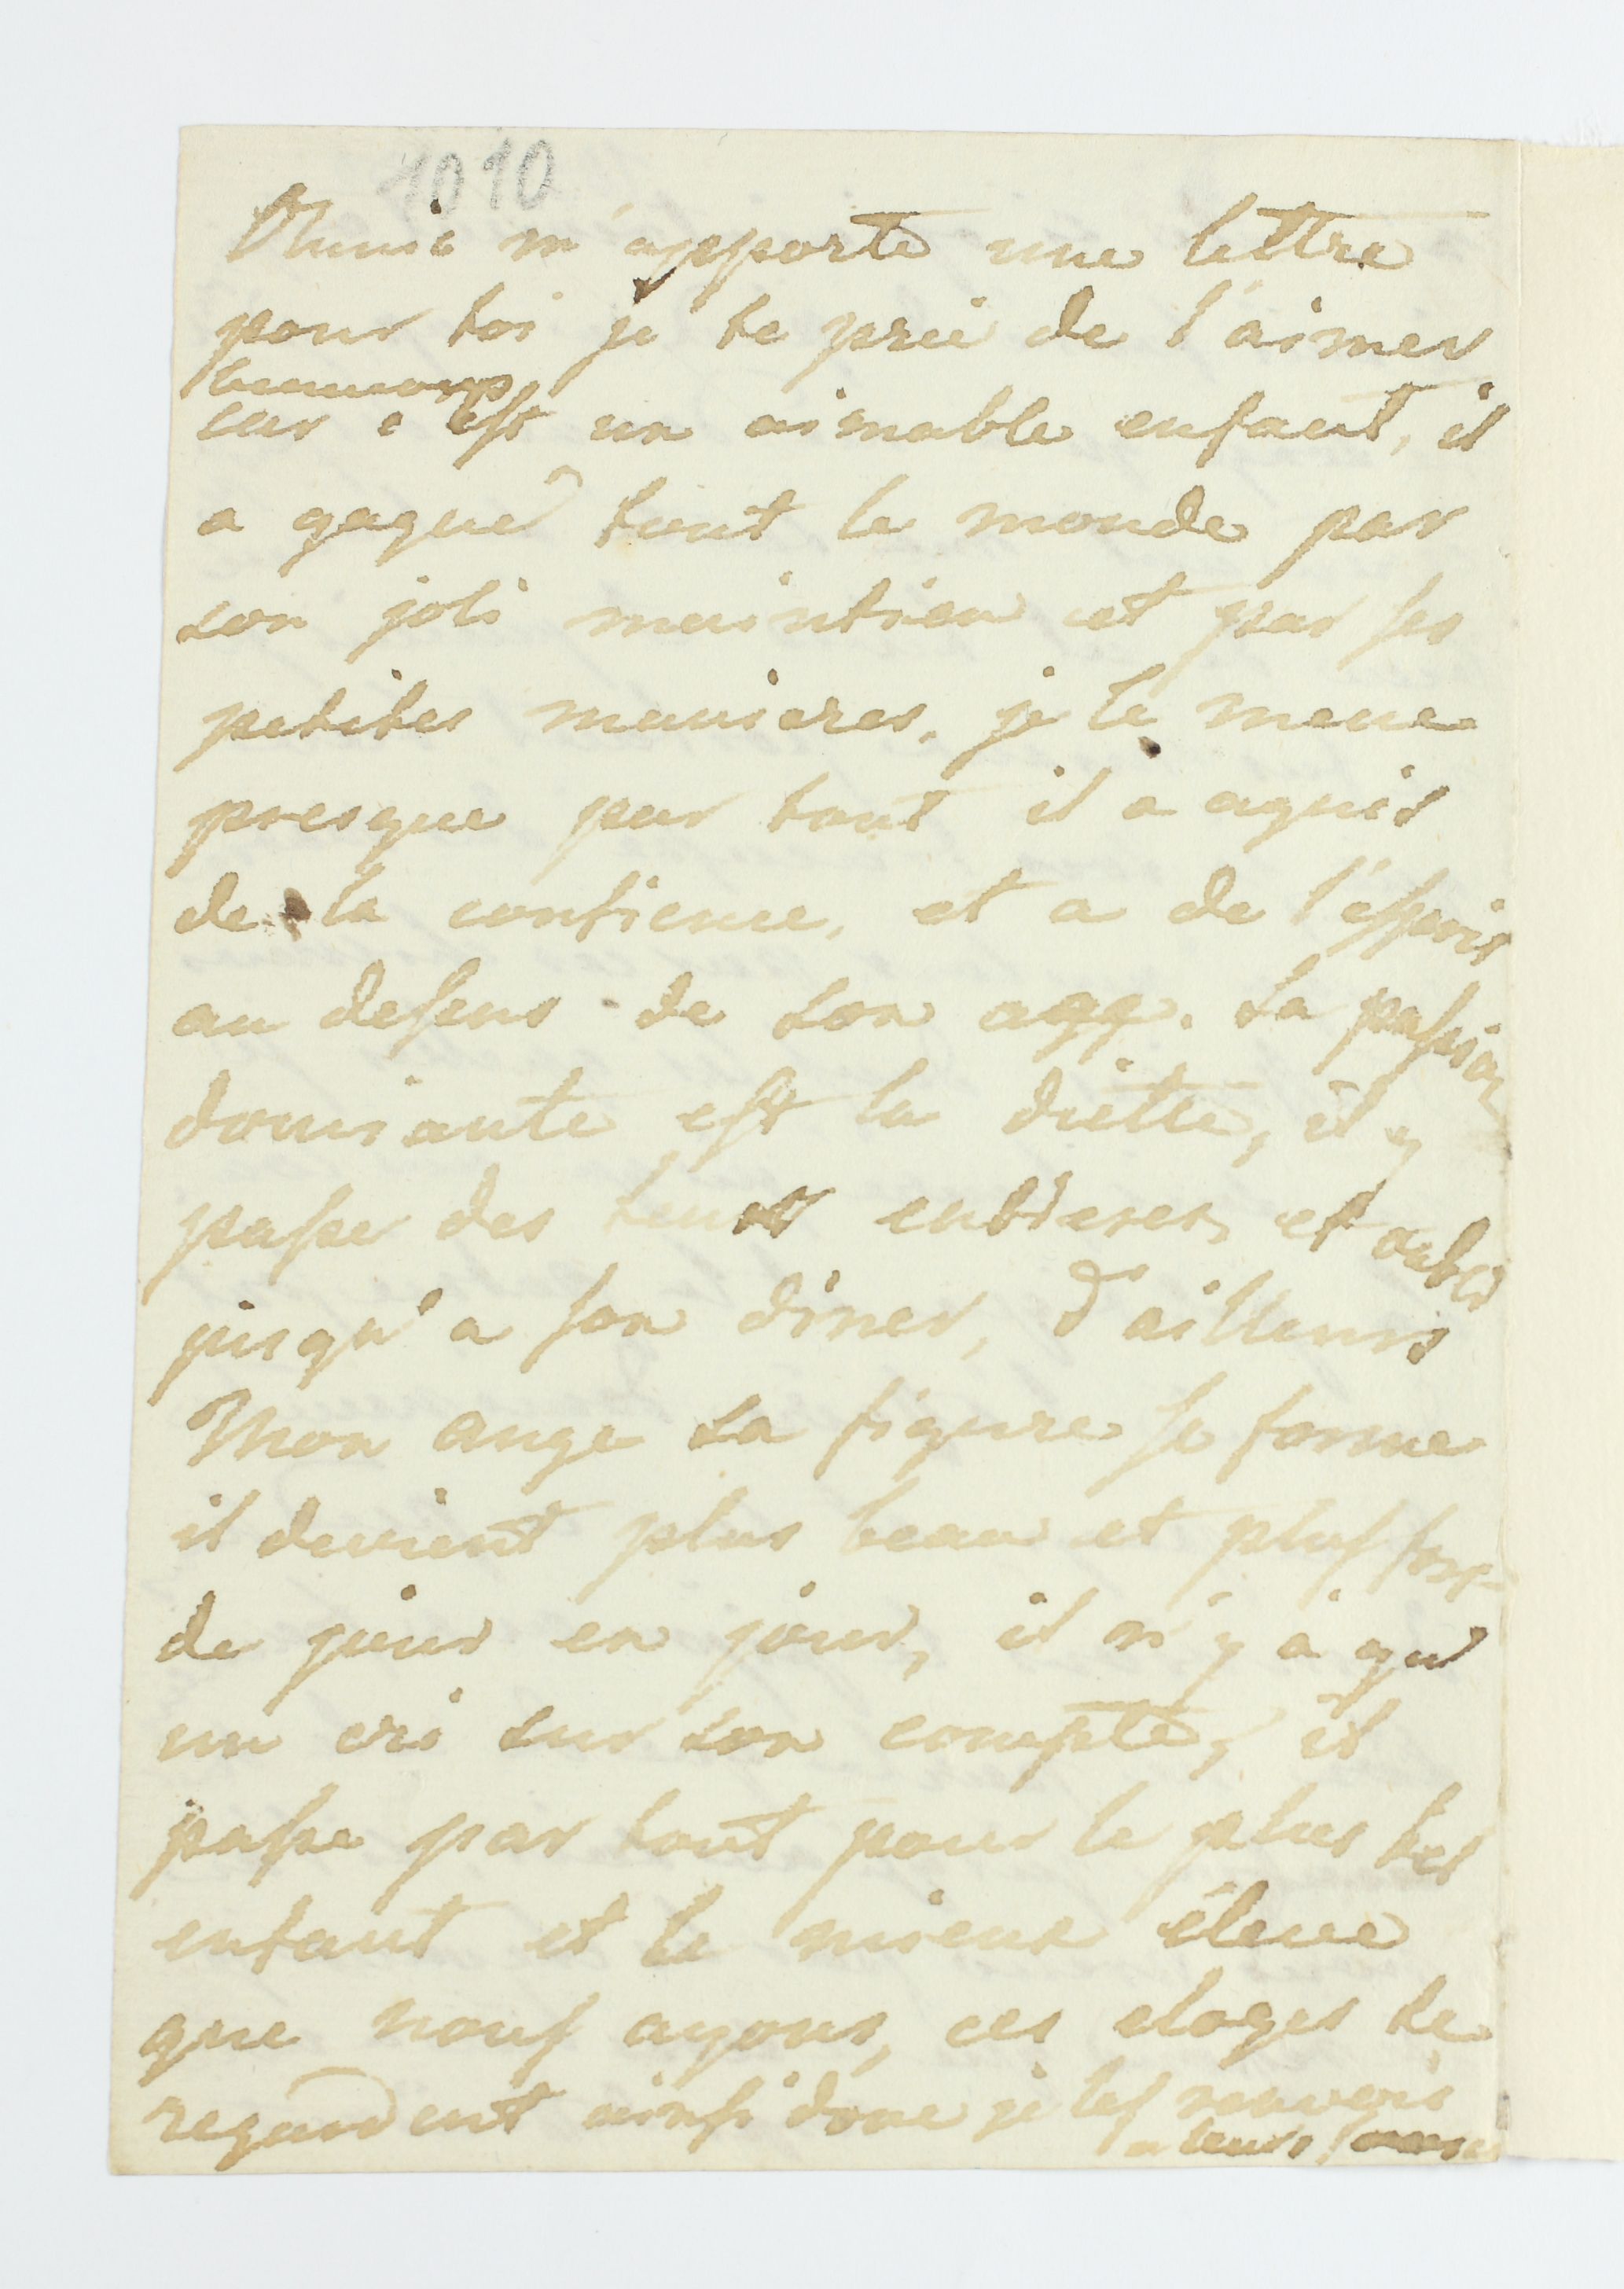 1010
m'apporte une lettre
pour toi je te prie de l'aimer
beaucoup
car c'est un aimable enfant, il
a gagné tout le monde par
son joli maintien et par ses
petites manieres, je le mene
presque par tout il a aquis
de la confience, et a de l'esprit
au desens de son age. La passion
domiante est la diette, il y
passe des entieres, et oublie
jusqu'a son diner, d'ailleurs
Mon ange sa figure se forme
il devient plus beau et plus fort
de jour en jour, il n'y a qu'
un cri sur son compte, il
passe par tout pour le plus bel
enfant et le mieux éleve
que nous ayons, ces eloges te
regardent ainsi donc je les renvois
a leurs